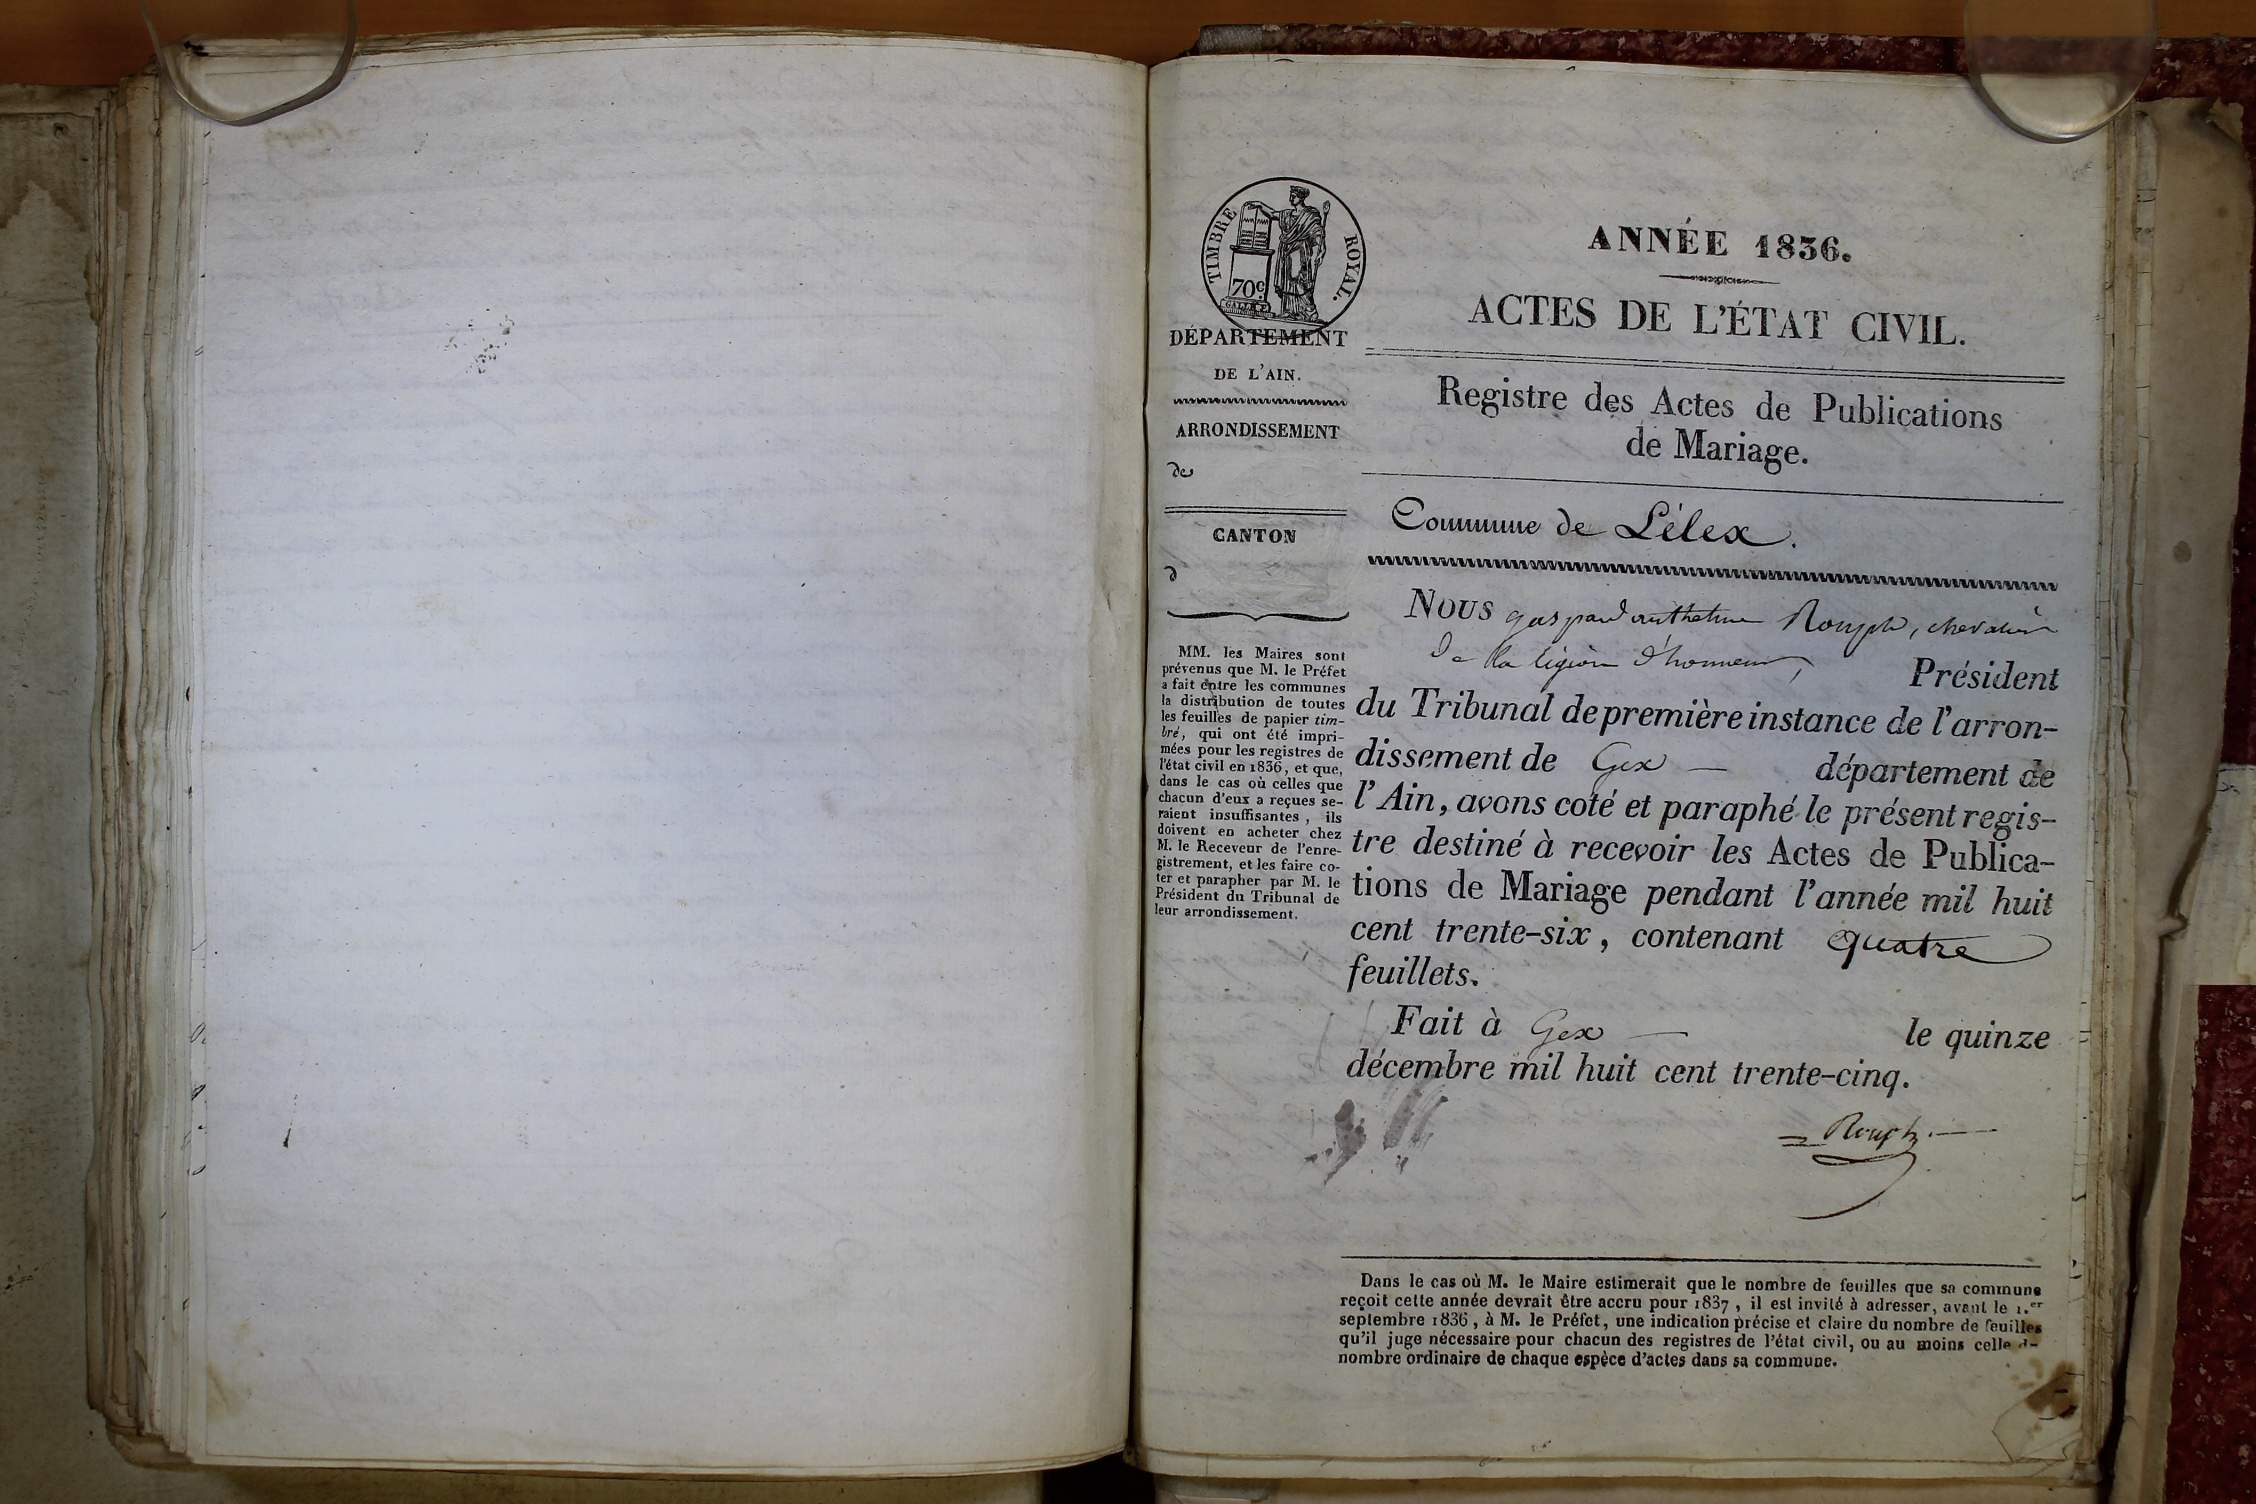 TIMBRE ROYAL.
70 C.
DÉPARTEMENT
DE L'AIN.
ARRONDISSEMENT
de
CANTON
d
MM. les Maires sont
prévenus que M. le Préfet
a fait entre les communes
la distribution de toutes
les feuilles de papier tim-
bré, qui ont été impri-
mées pour les registres de
l'état civil en 1836, et que,
dans le cas où celles que
chacun d'eux a reçues se-
raient insuffisantes, ils
doivent en acheter chez
M. le Receveur de l'enre-
gistrement, et les faire co-
ter et parapher par M. le
Président du Tribunal de
leur arrondissement.
ANNÉE 1836.
ACTES DE L'ÉTAT CIVIL.
Registre des Actes de Publications
de Mariage.
Commune de Lélex.
Nous gaspard Rouph, chevalier
De la légion d'honneur, Président
du Tribunal de première instance de l'arron-
dissement de Gex — département de
l'Ain, avons coté et paraphé le présent regis-
tre destiné à recevoir les Actes de Publica-
tions de Mariage pendant l'année mil huit
cent trente-six, contenant quatre
feuillets.
Fait à Gex — le quinze
décembre mil huit cent trente-cinq.
Rouph
Dans le cas où M. le Maire estimerait que le nombre de feuilles que sa commune
reçoit cette année devrait être accru pour 1837, il est invité à adresser, avant le 1.er
septembre 1836, à M. le Préfet, une indication précise et claire du nombre de feuilles
qu'il juge nécessaire pour chacun des registres de l'état civil, ou au moins celle d-
nombre ordinaire de chaque espèce d'actes dans sa commune.